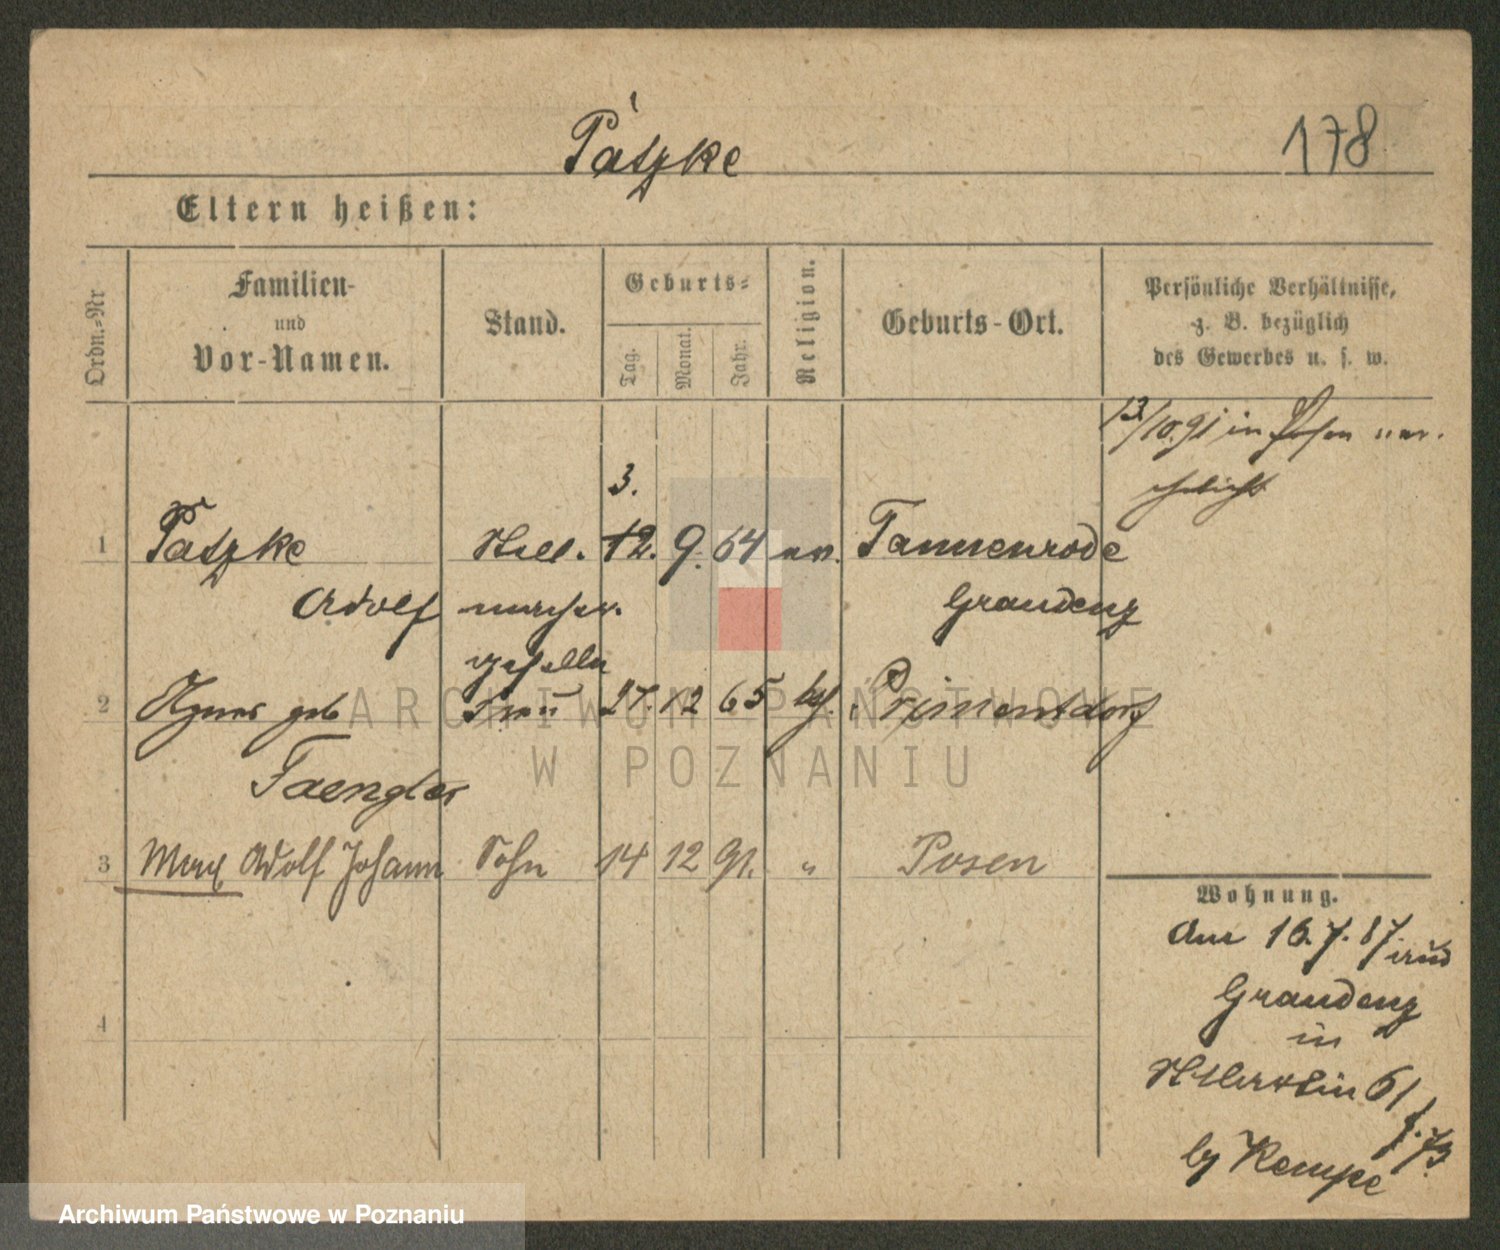 Patzke
178
Eltern heißen:
Ordn.-Nr
Familien-
und
Vor-Namen.
Stand.
Geburts-
Tag.
Monat.
Jahr.
Religion.
Geburts-Ort.
Persönliche Verhältnisse,
z. B. bezüglich
des Gewerbes u. s. w.
13/10.91 in Posen ver-
ehelicht
3.
1 Patzke Stell. 12. 9. 64 ev. Tannenrode
Adolf macher Graudenz
geselle
2 Agnes geb Frau 27. 12 65 kath. Primentdorf
Taengler
3 Max Adolf Johann Sohn 14 12 91. " Posen
4
Wohnung.
Am 16.7.87 aus
Graudenz
in
61
by Kempe
ARCHIWUM PAŃSTWOWE
W POZNANIU
Archiwum Państwowe w Poznaniu